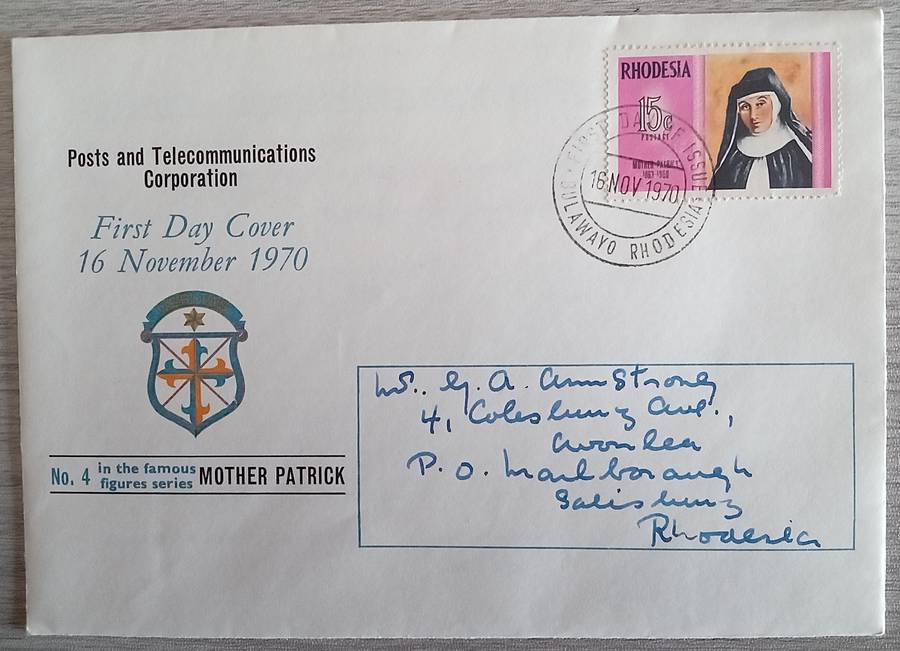 Posts and Telecommunications
Corporation
First Day Cover
16 November 1970
No. 4 in the famous
figures series MOTHER PATRICK
RHODESIA
15c
POSTAGE
MOTHER PATRICK
FIRST DAY OF ISSUE
16 NOV 1970
BULAWAYO RHODESIA
G. A. Armstrong
4, Colesburg Ave.,
Avonlea
P. O. Marlborough
Salisbury
Rhodesia